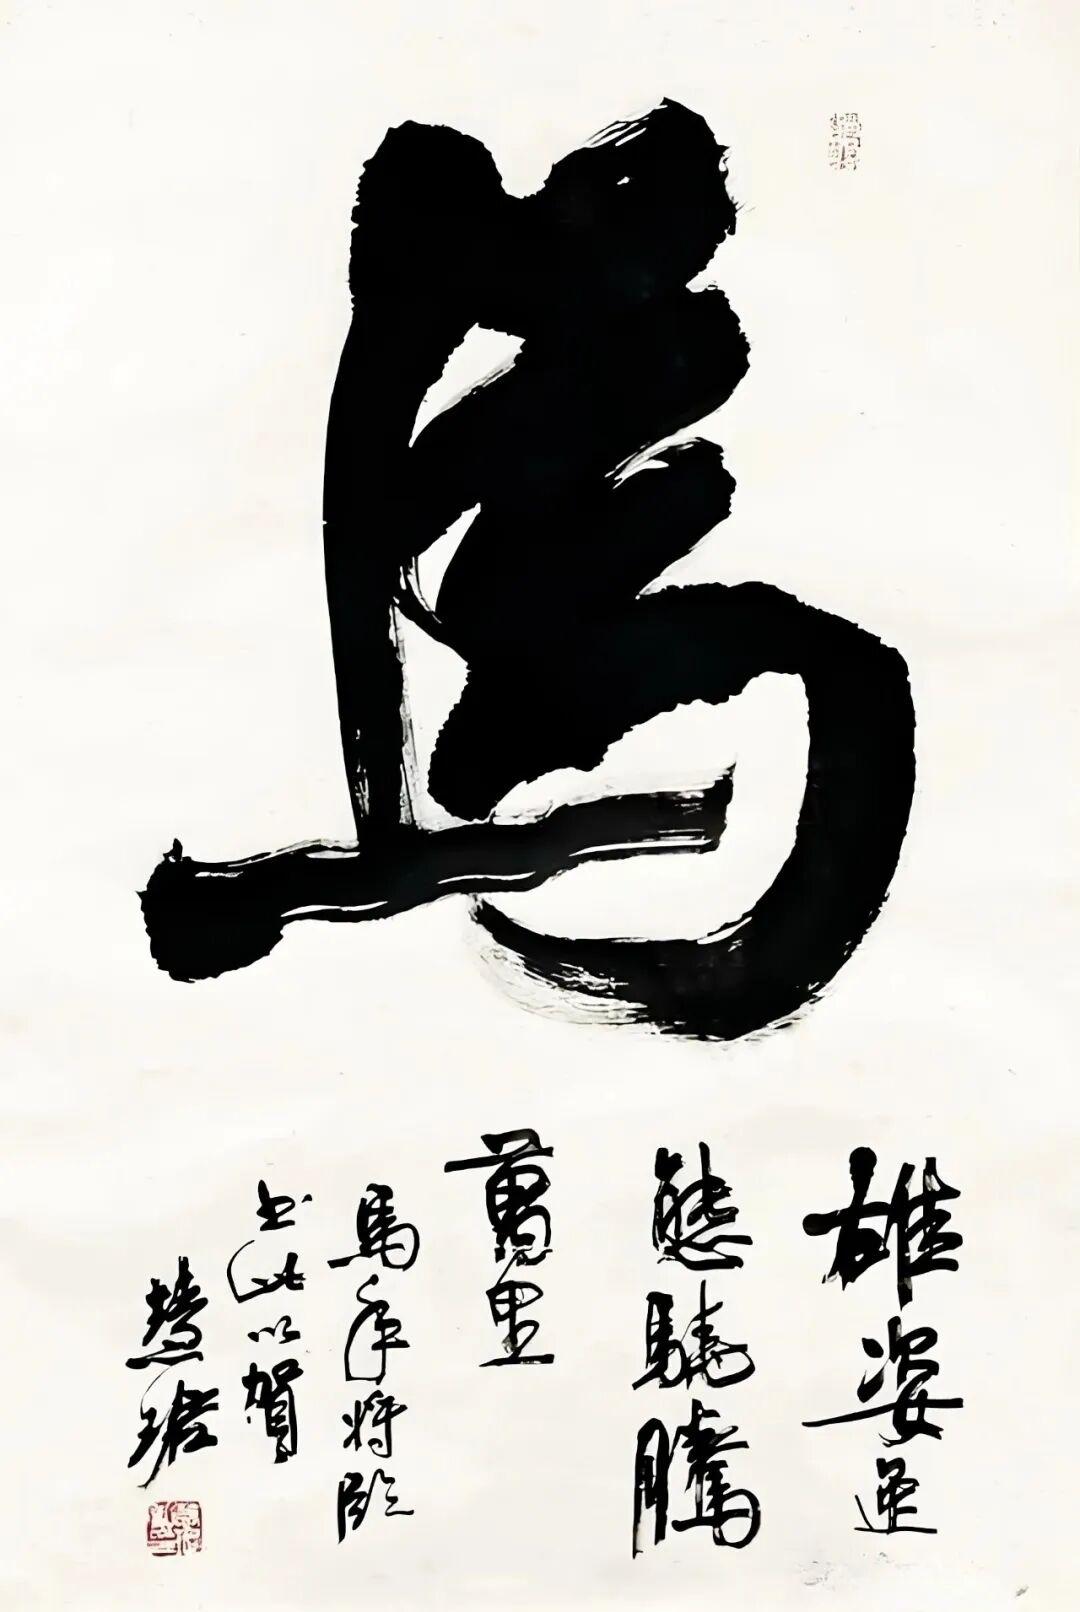 馬
雄姿逸
態驍騰
萬里
馬年将臨
書此以賀
慧珺